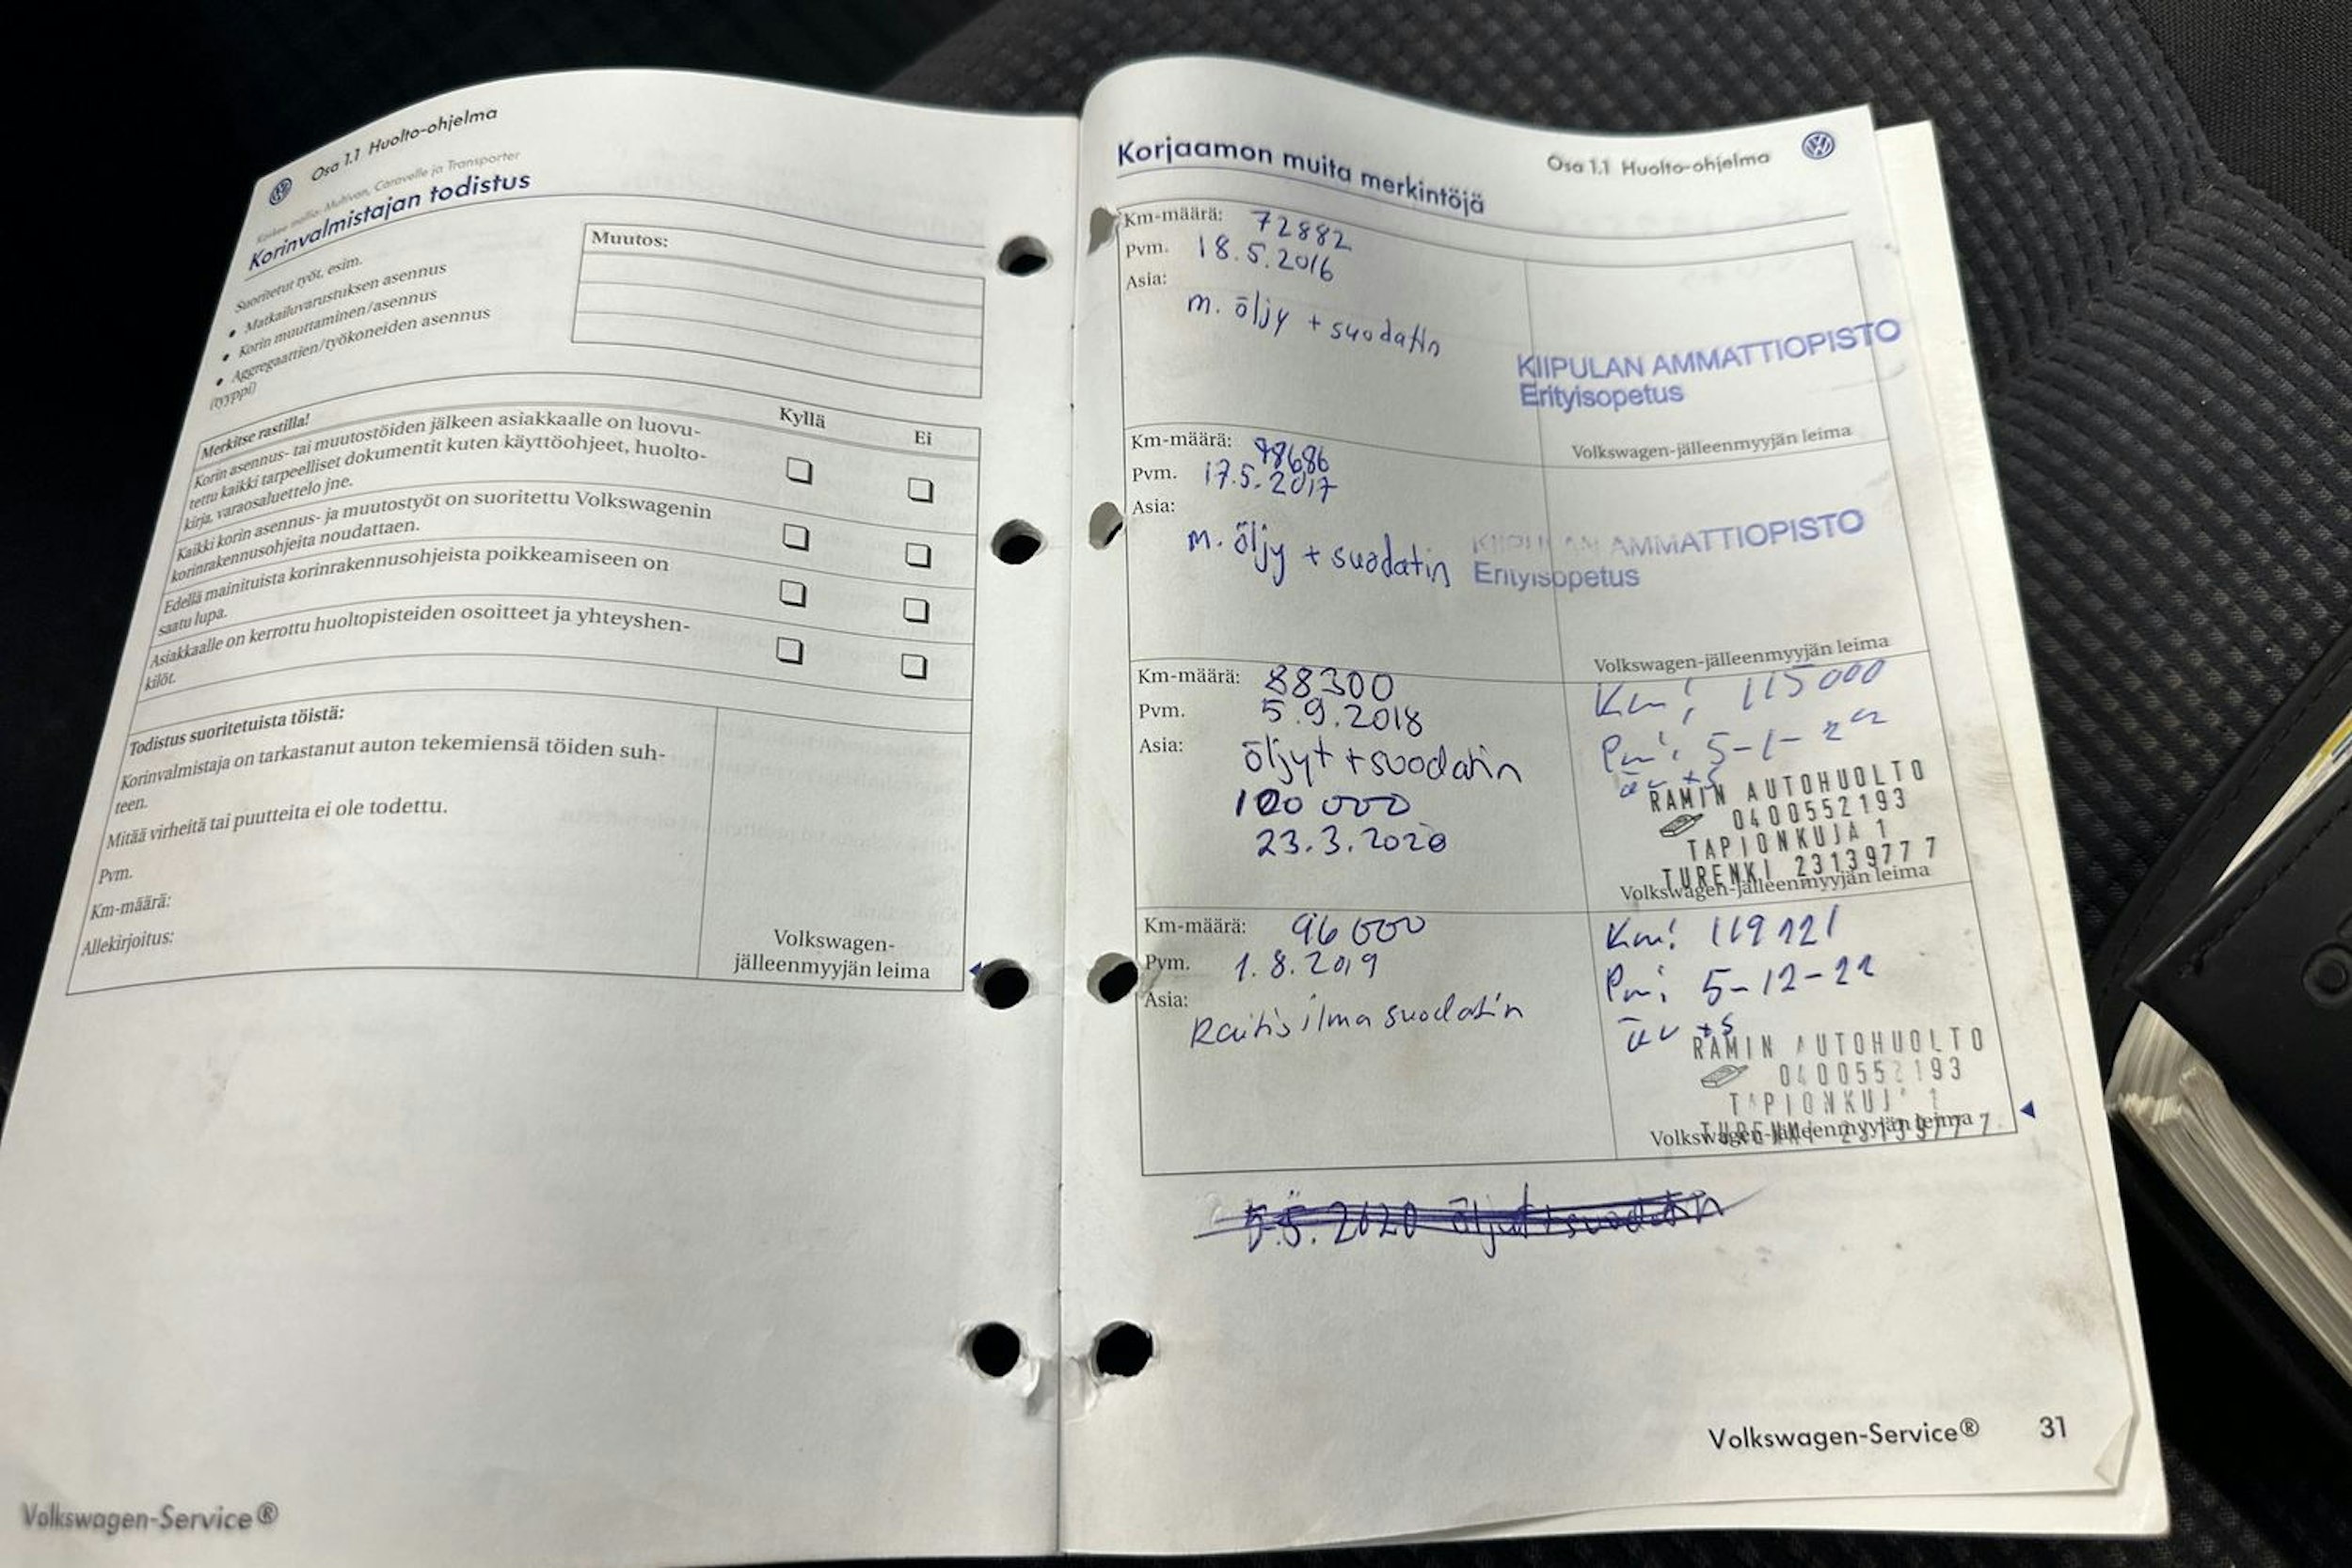 Osa 1.1 Huolto-ohjelma
Koskee mallia: Multivan, Caravelle ja Transporter
Korinvalmistajan todistus
Suoritetut työt, esim.
• Matkailuvarustuksen asennus
• Korin muuttaminen/asennus
• Aggregaattien/työkoneiden asennus
(tyyppi)
Muutos:
Merkitse rastilla!
Kyllä
Ei
Korin asennus- tai muutostöiden jälkeen asiakkaalle on luovu-
tettu kaikki tarpeelliset dokumentit kuten käyttöohjeet, huolto-
kirja, varaosaluettelo jne.
Kaikki korin asennus- ja muutostyöt on suoritettu Volkswagenin
korinrakennusohjeita noudattaen.
Edellä mainituista korinrakennusohjeista poikkeamiseen on
saatu lupa.
Asiakkaalle on kerrottu huoltopisteiden osoitteet ja yhteyshen-
kilöt.
Todistus suoritetuista töistä:
Korinvalmistaja on tarkastanut auton tekemiensä töiden suh-
teen.
Mitää virheitä tai puutteita ei ole todettu.
Pvm.
Km-määrä:
Allekirjoitus:
Volkswagen-
jälleenmyyjän leima
Volkswagen-Service®
Korjaamon muita merkintöjä
Osa 1.1 Huolto-ohjelma
Km-määrä: 72882
Pvm. 18.5.2016
Asia:
m. öljy + suodatin
KIIPULAN AMMATTIOPISTO
Erityisopetus
Volkswagen-jälleenmyyjän leima
Km-määrä: 78686
Pvm. 17.5.2017
Asia:
m. öljy + suodatin
KIIPULAN AMMATTIOPISTO
Erityisopetus
Volkswagen-jälleenmyyjän leima
Km-määrä: 88300
Pvm. 5.9.2018
Asia: öljyt + suodatin
100 000
23.3.2020
Km: 115000
Pm: 5-1-22
öv +s
RAMIN AUTOHUOLTO
0400552193
TAPIONKUJA 1
TURENKI 23139777
Volkswagen-jälleenmyyjän leima
Km-määrä: 96 000
Pvm. 1.8.2019
Asia:
Raitis ilma suodatin
Km: 119121
Pm: 5-12-22
öv +s
RAMIN AUTOHUOLTO
0400552193
TAPIONKUJA 1
TURENKI 23139777
Volkswagen-jälleenmyyjän leima
5.5.2020 öljyt + suodatin
Volkswagen-Service® 31